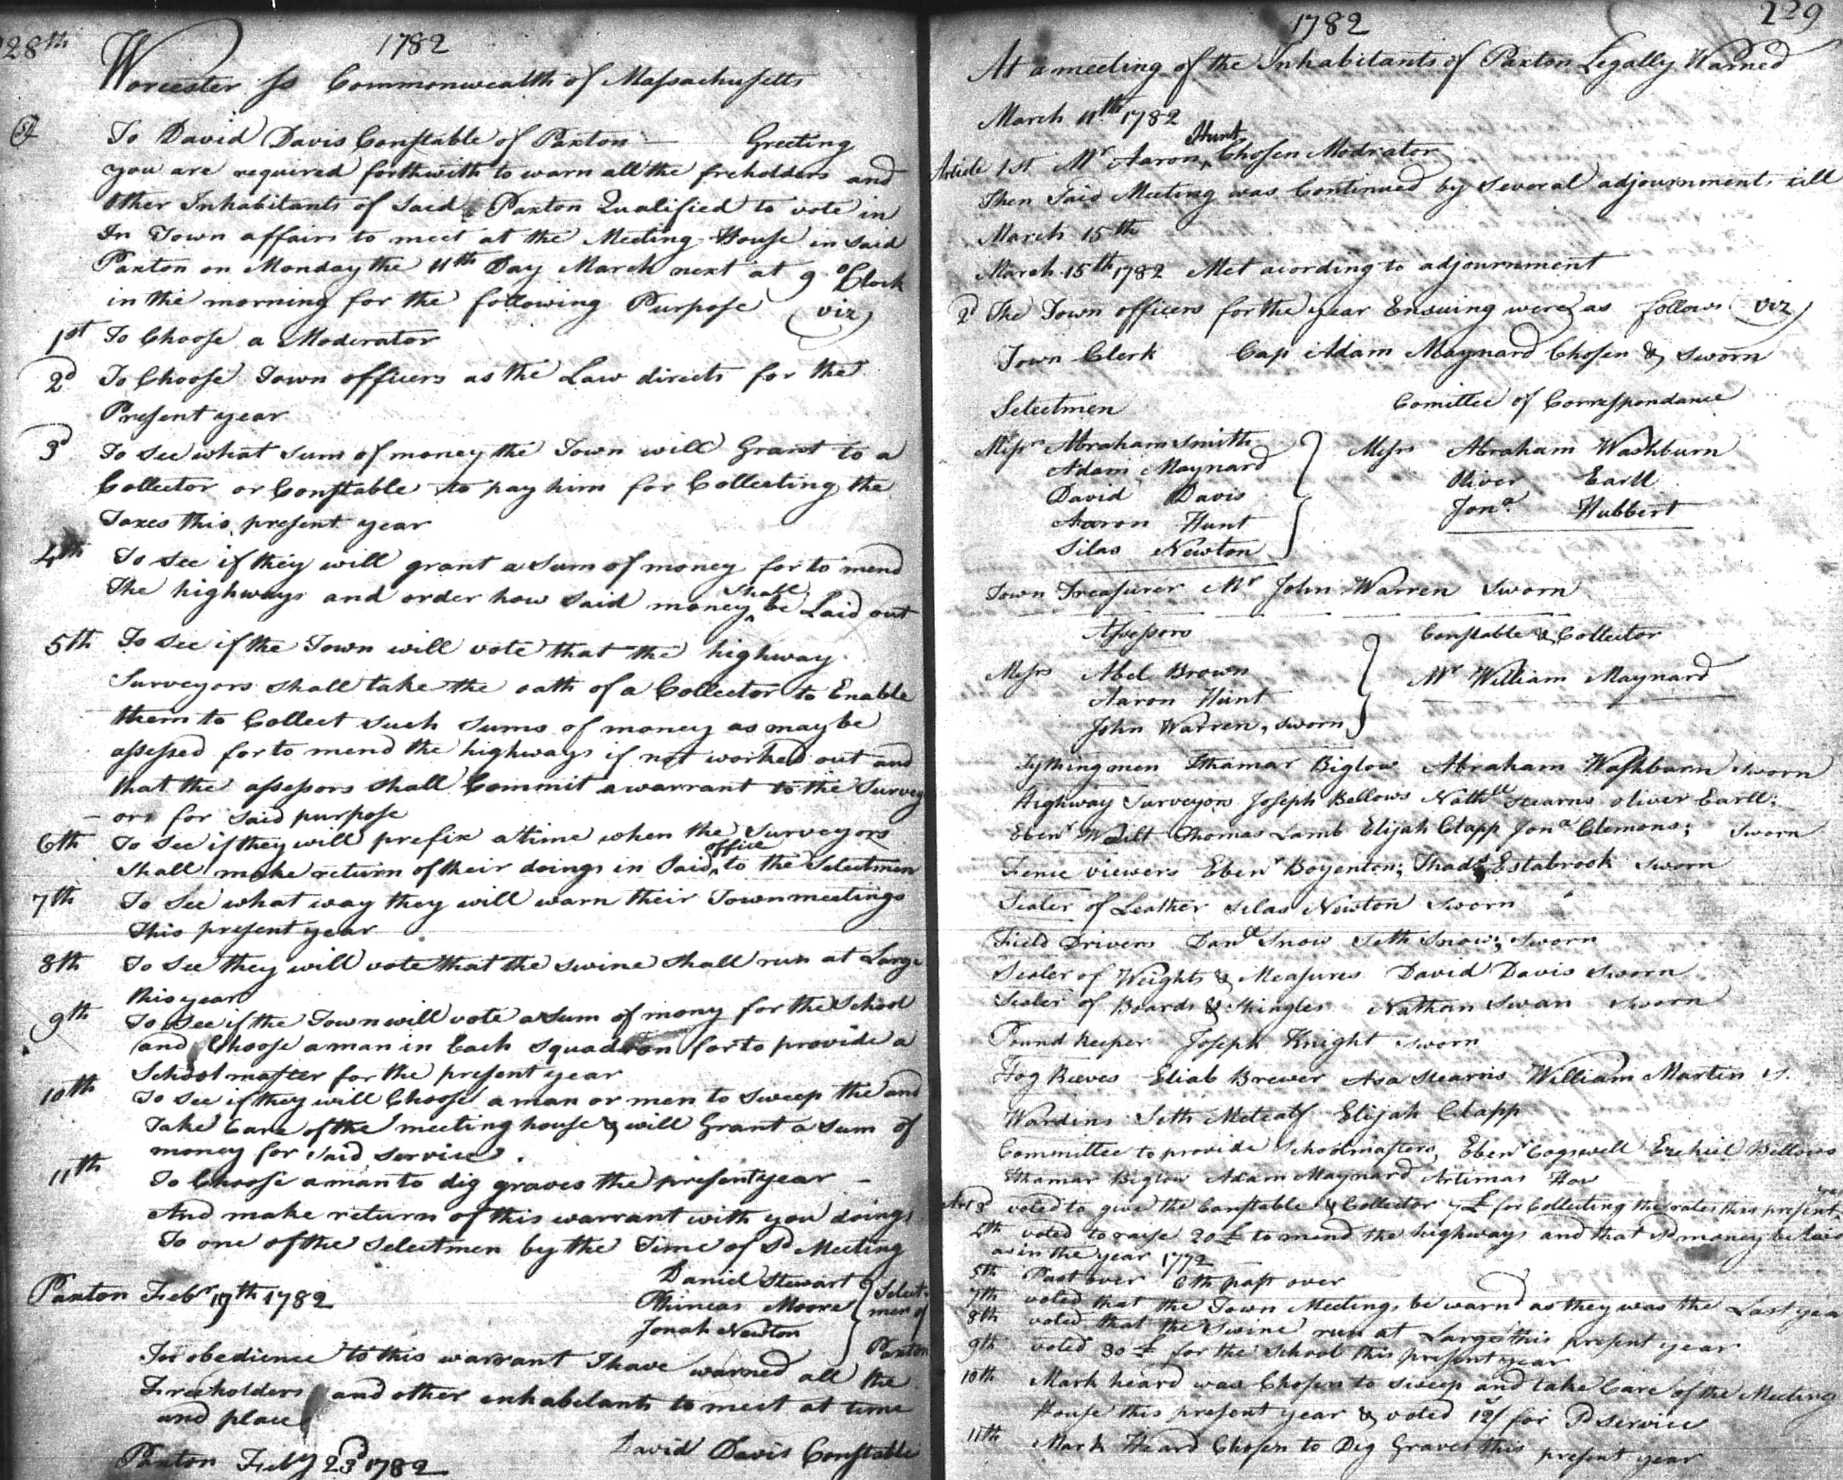 128th
1782
Worcester ss Commonwealth of Massachusetts
To David Davis Constable of Paxton Greeting
you are required forthwith to warn all the freholders and
Other Inhabitants of Said Paxton Qualified to vote in
In Town affairs to meet at the Meeting House in said
Paxton on Monday the 11th Day March next at 9 oClock
in the morning for the following Purpose (viz)
1st To Choose a Moderator
2d To Choose Town officers as the Law directs for the
Present year
3d To See what sum of money the Town will Grant to a
Collector or Constable to pay him for Collecting the
Taxes this present year
4th To see if they will grant a sum of money for to mend
The highways and order how said money shall be Laid out
5th To See if the Town will vote that the highway
Surveyors shall take the oath of a Collector to Enable
them to Collect such sums of money as may be
assessed for to mend the highways if not worked out and
that the assessors shall Commit a warrant to the Survey
- ors for Said purpose
6th To See if they will prefix a time when the Surveyors
shall make return of their doings in Said office to the Selectmen
7th To See what way they will warn their Town meetings
This present year
8th To See they will vote that the swine shall run at Large
this year
9th To See if the Town will vote a sum of mony for the School
and Choose a man in Each Squadron for to provide a
School master for the present year
10th To see if they will Choose a man or men to sweep the and
Take Care of the meeting house & will Grant a sum of
money for Said Service
11th To Choose a man to dig graves the present year
And make return of this warrant with you doings
To one of the Selectmen by the Time of Sd Meeting
Paxton Febr 19th 1782
Daniel Stewart
Phineas Moore
Jonah Newton
Select
men of
Paxton
In obedience to this warrant I have warned all the
Freeholders and other enhabitants to meet at time
and place
David Davis Constable
Paxton Feby 23d 1782
1782
229
At a meeting of the Inhabitants of Paxton Legally Warned
March 11th 1782
Article 1st Mr Aaron Hunt Chosen Modrator
Then Said Meeting was Continued by Several adjournments till
March 15th
March 15th 1782 Met acording to adjournment
2d The Town officers for the year Ensuing were as follows (viz)
Town Clerk Cap Adam Maynard Chosen & Sworn
Selectmen
Messr Abraham Smith
Adam Maynard
David Davis
Aaron Hunt
Silas Newton
Comittee of Correspondance
Messrs Abraham Washburn
Oliver Earll
Jona Hubbert
Town Treasurer Mr John Warren Sworn
Assessors
Messrs Abel Brown
Aaron Hunt
John Warren, sworn
Constable & Collector
Mr William Maynard
Tythingmen Ithamar Biglow Abraham Washburn sworn
Highway Surveyors Joseph Bellows Nathll Stearns oliver Earll;
Ebenr Wait Thomas Lamb Elijah Clapp Jona Clemons; Sworn
Fence viewers Ebenr Boyenton; Thads Estabrook Sworn
Sealer of Leather Silas Newton Sworn
Field Drivers Danel Snow Seth Snow; sworn
Sealer of Weights & Measures David Davis Sworn
Sealer of Boards & Shingles Nathan Swan Sworn
Pound keeper Joseph Knight sworn
Hog Reeves Eliab Brewer Asa Stearns William Martin
Wardins Seth Metcalf Elijah Clapp
Committee to provide Schoolmasters, Ebenr Cogswell Ezekiel Bellows
Ithamar Biglow Adam Maynard Artimas How
Art 3d voted to give the Constable & Collector 7£ for Collecting the rates this present year
4th voted to raise 20£ to mend the highways and that sd money be laid
as in the year 1772
5th Past over 6th past over
7th voted that the Town Meetings be warnd as they was the Last year
8th voted that the Swine run at Large this present year
9th voted 30£ for the School this present year
10th Mark heard was Chosen to sweep and take Care of the Meeting
House this present year & voted 12/ for sd service
11th Mark Heard Chosen to Dig Graves this present year